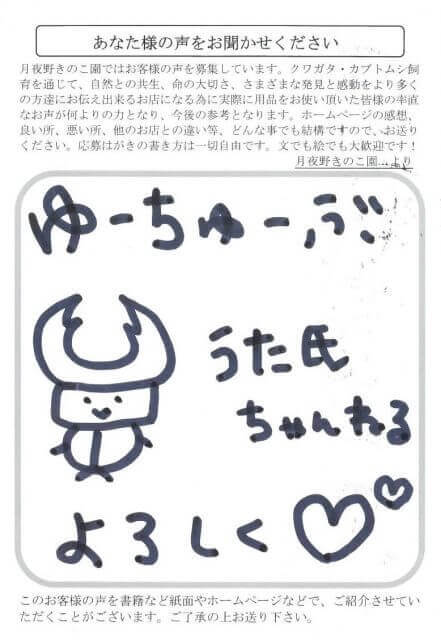 あなた様の声をお聞かせください
月夜野きのこ園ではお客様の声を募集しています。クワガタ・カブトムシ飼
育を通じて、自然との共生、命の大切さ、さまざまな発見と感動をより多く
の方達にお伝え出来るお店になる為に実際に用品をお使い頂いた皆様の率直
なお声が何よりの力となり、今後の参考となります。ホームページの感想、
良い所、悪い所、他のお店との違い等、どんな事でも結構ですので、お送り
ください。応募はがきの書き方は一切自由です。文でも絵でも大歓迎です！
月夜野きのこ園 より
ゆーちゅーぶ
うた氏
ちゃんねる
よろしく♡♡
このお客様の声を書籍など紙面やホームページなどで、ご紹介させてい
ただくことがございます。ご了承の上お送り下さい。